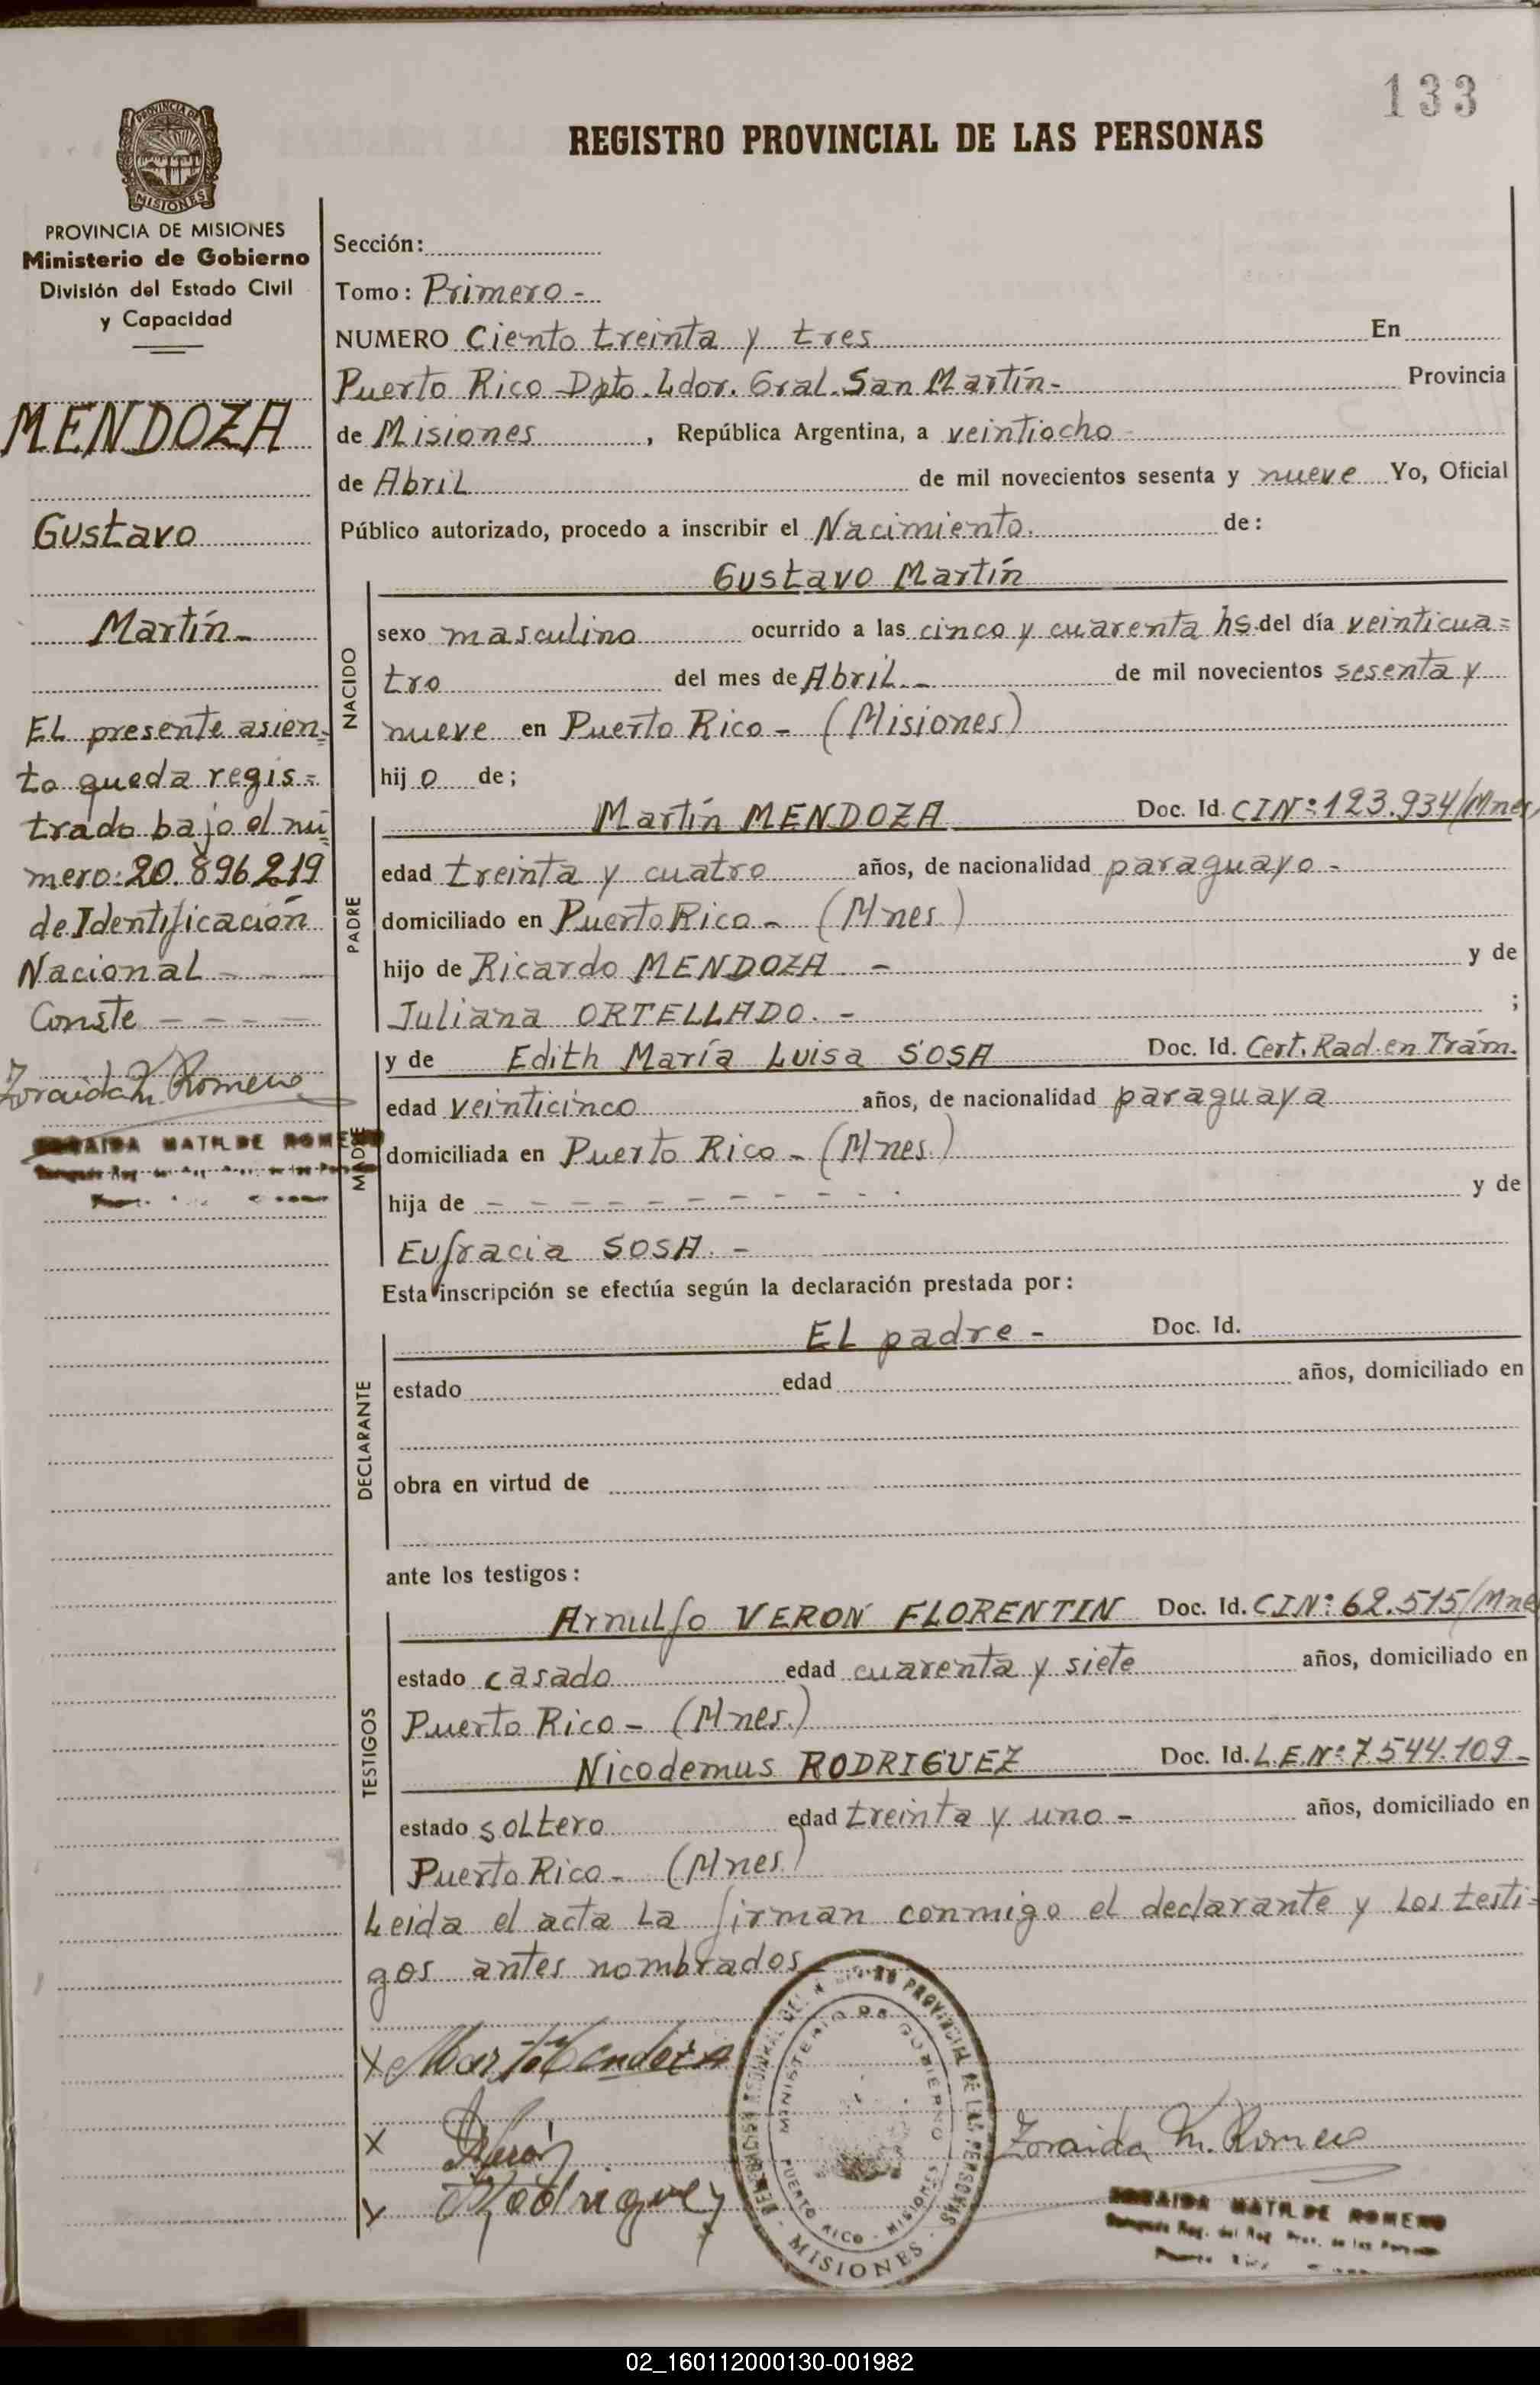 133
REGISTRO PROVINCIAL DE LAS PERSONAS
PROVINCIA DE MISIONES
Ministerio de Gobierno
División del Estado Civil
y Capacidad
MENDOZA
Gustavo
Martín-
EL presente asien=
to queda regis=
trado bajo el nú
mero: 20.896219
de Identificación
Nacional - - -
Conste - - - -
Zoraida M. Romero
ZORAIDA MATILDE ROMERO
Sección:
Tomo: Primero-
NUMERO Ciento treinta y tres En
Puerto Rico Dpto. Ldor. Gral. San Martín- Provincia
de Misiones , República Argentina, a veintiocho
de Abril de mil novecientos sesenta y nueve Yo, Oficial
Público autorizado, procedo a inscribir el Nacimiento. de:
NACIDO
Gustavo Martín
sexo masculino ocurrido a las cinco y cuarenta hs. del día veinticua=
tro del mes de Abril.- de mil novecientos sesenta y
nueve en Puerto Rico- (Misiones)
hijo de;
PADRE
Martín MENDOZA Doc. Id. CINº: 123.934/Mnes
edad treinta y cuatro años, de nacionalidad paraguayo-
domiciliado en Puerto Rico- (Mnes)
hijo de Ricardo MENDOZA.- y de
Juliana ORTELLADO.- ;
MADRE
y de Edith María Luisa SOSA Doc. Id. Cert. Rad. en Trám.
edad veinticinco años, de nacionalidad paraguaya
domiciliada en Puerto Rico- (Mnes.)
hija de - - - - - - - - - - y de
Eufracia SOSA.-
Esta inscripción se efectúa según la declaración prestada por:
DECLARANTE
EL padre- Doc. Id.
estado edad años, domiciliado en
obra en virtud de
ante los testigos:
TESTIGOS
Arnulfo VERON FLORENTIN Doc. Id. CINº: 62.515/Mne
estado casado edad cuarenta y siete años, domiciliado en
Puerto Rico- (Mnes.)
Nicodemus RODRIGUEZ Doc. Id. L.E.Nº: 7544.109-
estado soltero edad treinta y uno- años, domiciliado en
Puerto Rico- (Mnes)
Leida el acta la firman conmigo el declarante y los testi=
gos antes nombrados
X Martín Mendoza
X Verón
X Rodriguez
MINISTERIO DE GOBIERNO
PUERTO RICO - MISIONES
PROVINCIAL DE LAS PERSONAS
- MISIONES -
Zoraida M. Romero
ZORAIDA MATILDE ROMERO
02_160112000130-001982